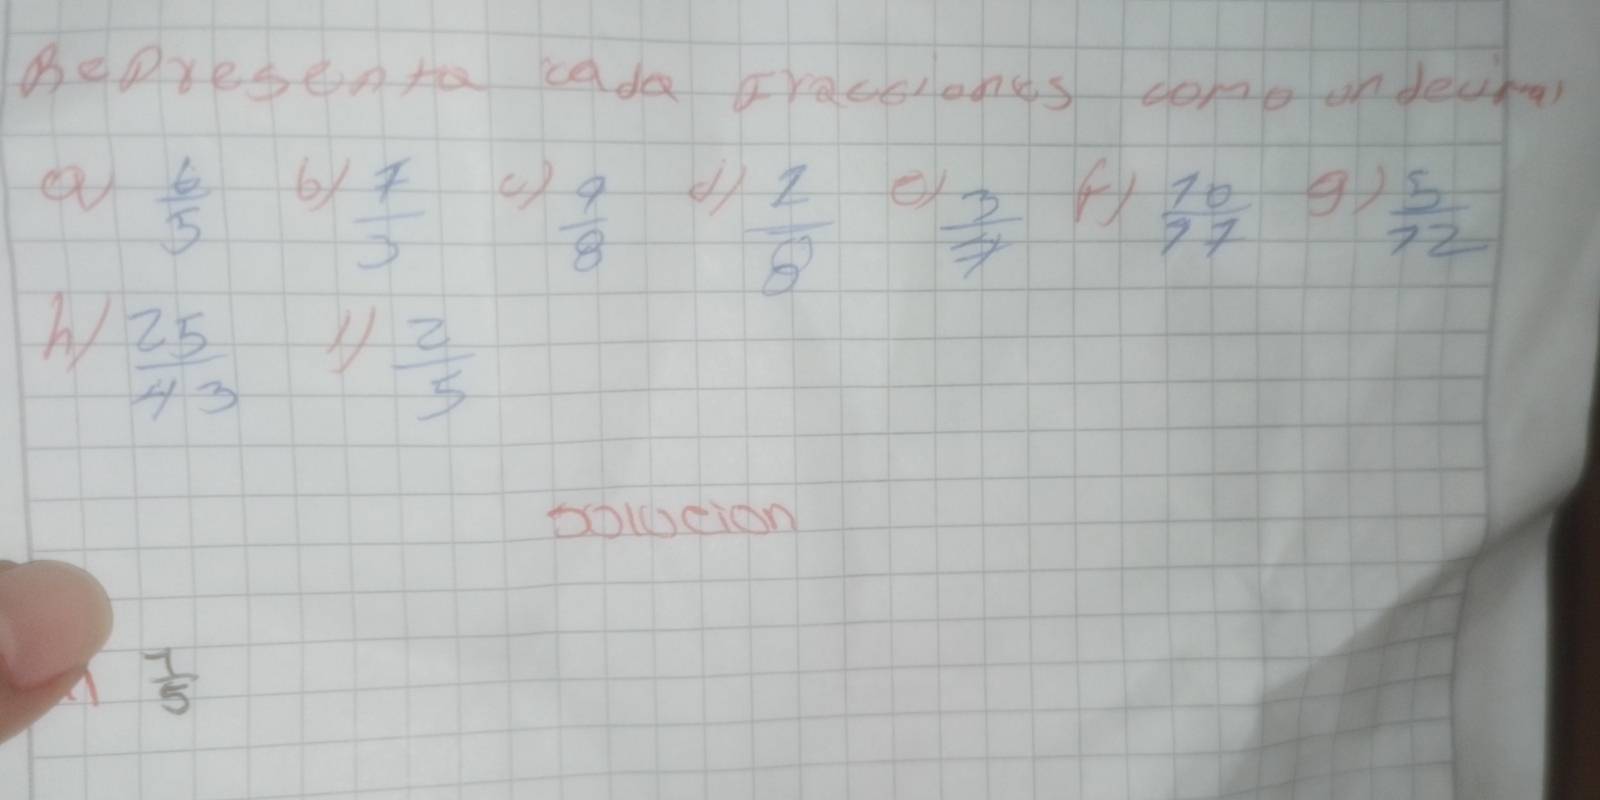 Representa cada fracciones como un decimal
a) 6/5 b) 7/3 c) 9/8 d) 1/6 e) 3/7 f) 10/11 g) 5/12
h) 25/43 i) 2/5
solucion
1/5